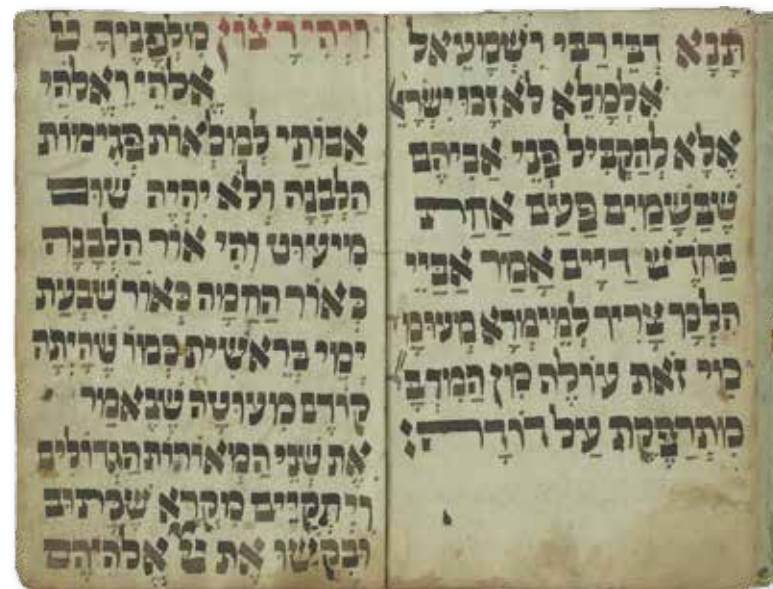 תָּנָא דְּבֵי רַבִּי יִשְׁמָעֵאל
אִלְמָלֵא לֹא זָכוּ יִשְׂרָ
אֶלָּא לְהַקְבִּיל פְּנֵי אֲבִיהֶם
שֶׁבַּשָּׁמַיִם פַּעַם אַחַת
בַּחֹדֶשׁ דַיָּים אָמַר אַבַּיֵי
הִלְכָּךְ צָרִיךְ לְמֵימְרָא מְעוּמָ
מִי זֹאת עוֹלָה מִן הַמִּדְבָּ
מִתְרַפֶּקֶת עַל דּוֹדָהּ׃
וִיְהִי רָצוֹן מִלְּפָנֶיךָ
אֱלֹהַי וֵאלֹהֵי
אֲבוֹתַי לְמַלְאוֹת פְּגִימוֹת
הַלְּבָנָה וְלֹא יִהְיֶה שׁוּם
מִיעוּט וִהִי אוֹר הַלְּבָנָה
כְּאוֹר הַחַמָּה כְּאוֹר שִׁבְעַת
יְמֵי בְּרֵאשִׁית כְּמוֹ שֶׁהָיְתָה
קוֹדֶם מִעוּטָהּ שֶׁנֶּאֱמַר
אֶת שְׁנֵי הַמְּאוֹרוֹת הַגְּדוֹלִים
וְיִתְקַיֵּים מִקְרָא שֶׁכָּתוּב
וּבִקְשׁוּ אֶת אֱלֹהֵיהֶם